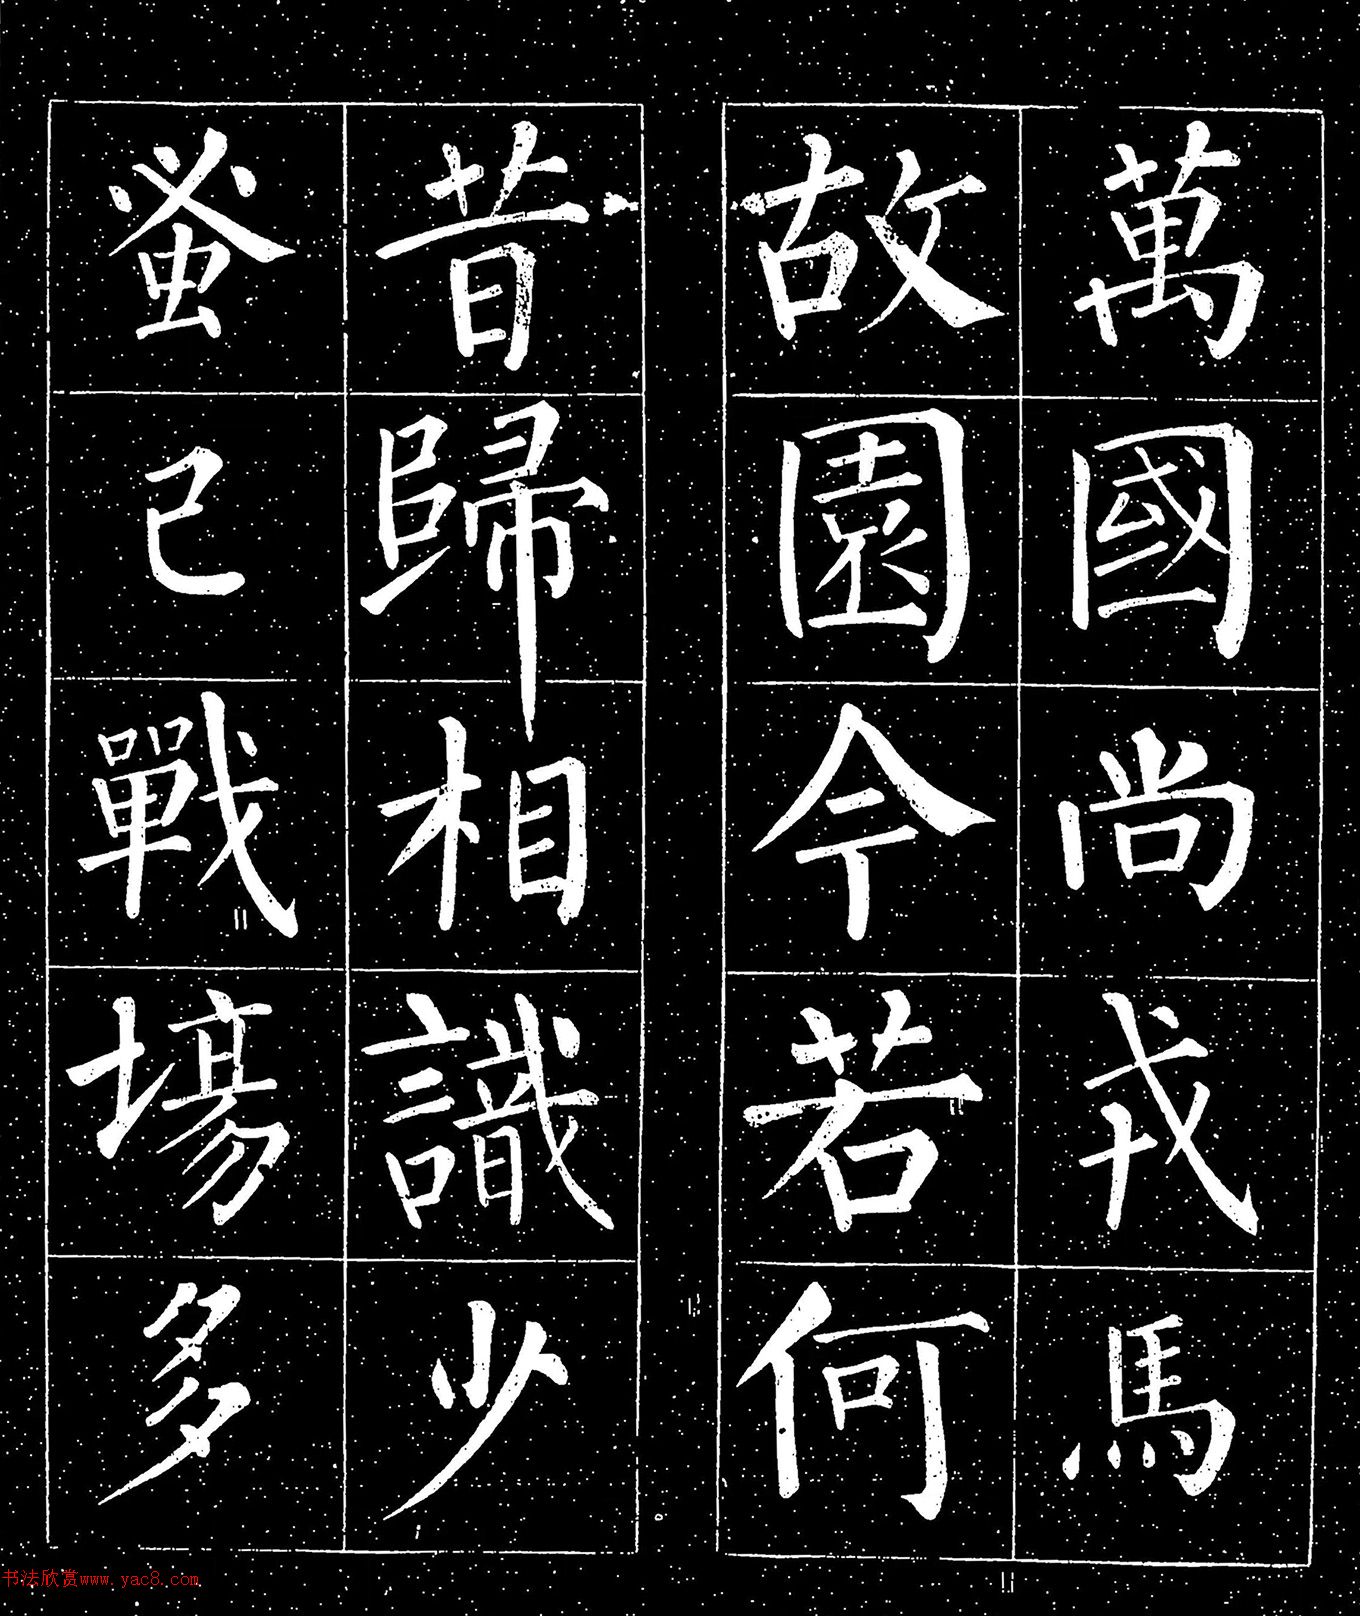 萬國尚戎馬
故園今若何
昔歸相識少
蚤已戰場多
书法欣赏www.yac8.com